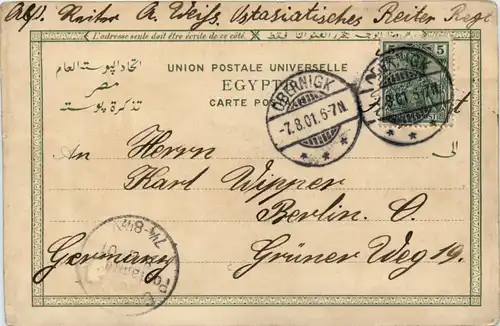 Abs. Reiter A. Weiss. Ostasiatisches Reiter Regt
L'adresse seule doit être écrite de ce côté.
اتحاد البوستة العام
مصر
تذكرة بوستة
UNION POSTALE UNIVERSELLE
EGYPT
CARTE POST
5
OBERNIGK
-7.8.01.6-7N
OBERNIGK
8.01.6-7N
الى
An Herrn
Karl Wipper
Berlin. O.
Germany Grüner Weg 19.
7¼-8¼V